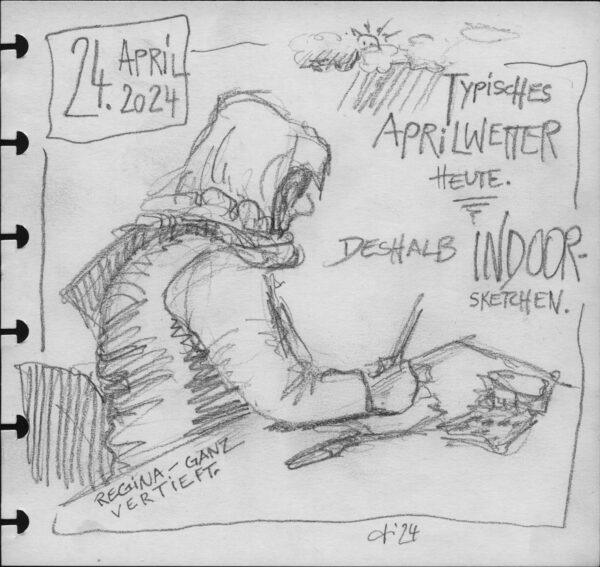 24. APRIL
2024
TYPISCHES
APRILWETTER
HEUTE.
DESHALB INDOOR-
SKETCHEN.
REGINA - GANZ
VERTIEFT.